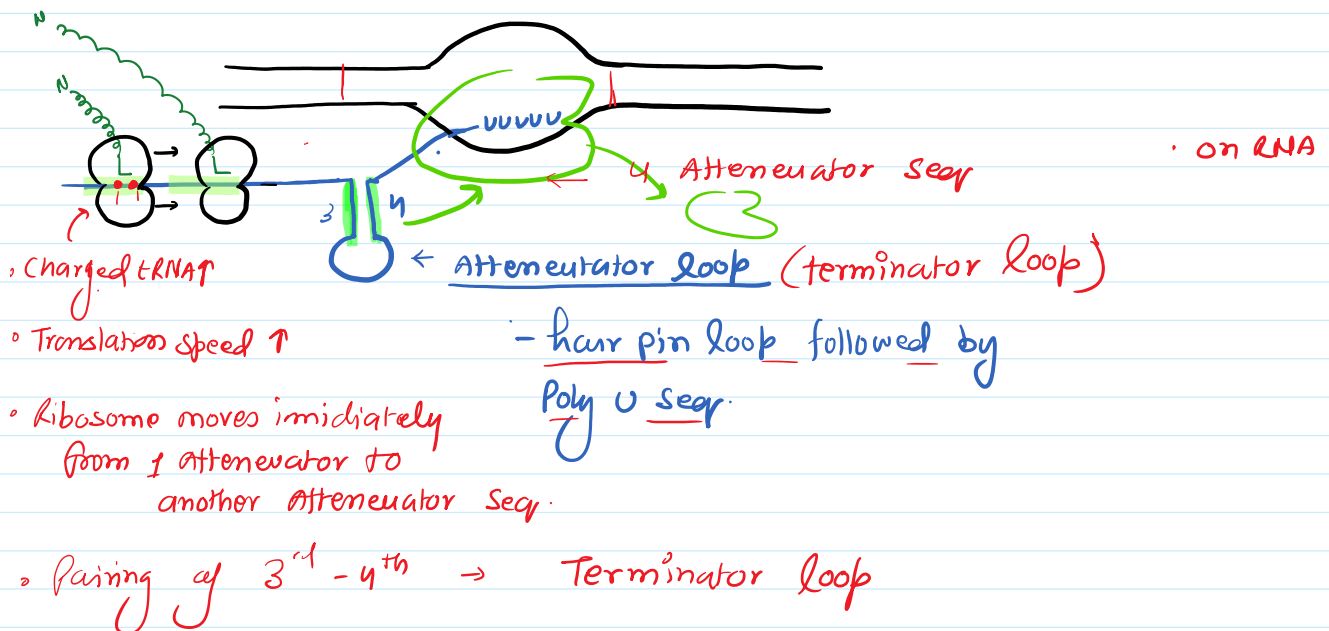 N
N
UUUUU
4 Atteneuator seq
· on RNA
3 4
← Atteneutator loop (terminator loop)
, Charged tRNA↑
◦ Translation speed ↑
- hair pin loop followed by
Poly U seq.
◦ Ribosome moves imidiately
from 1 Atteneuator to
another Atteneuator Seq.
◦ Pairing of 3rd - 4th → Terminator loop